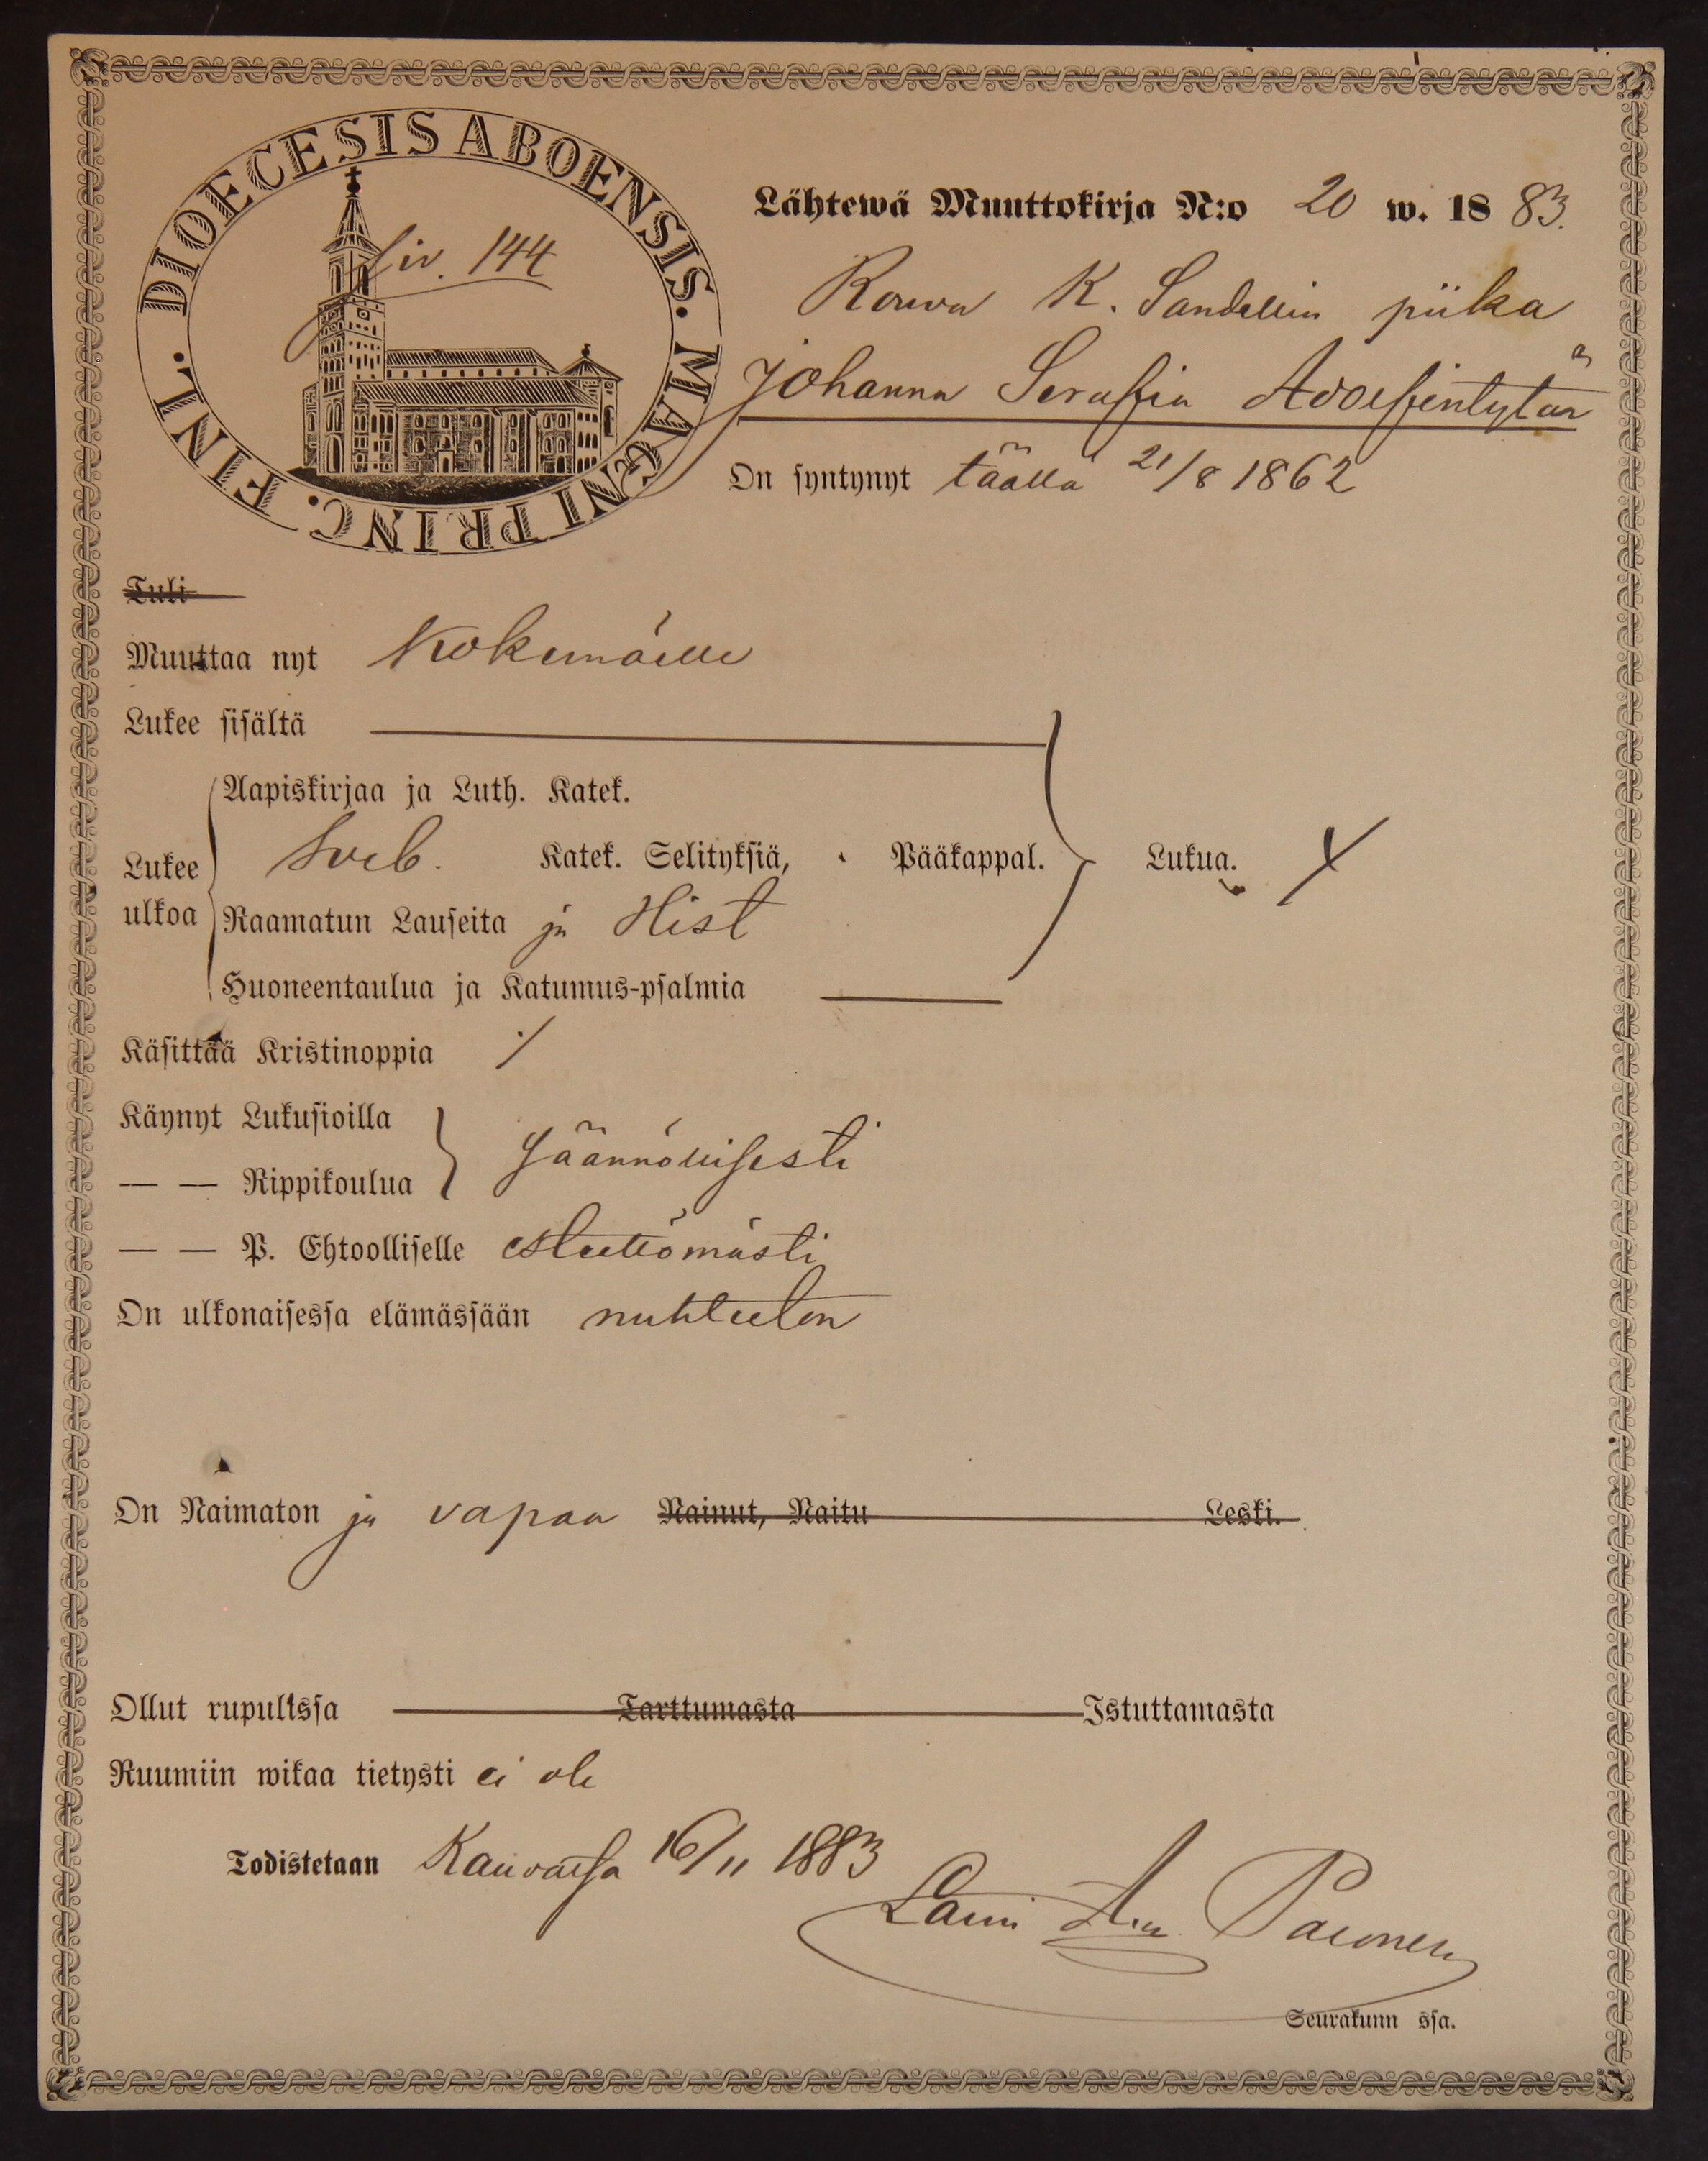 DIOECESIS ABOENSIS. MAGNI PRINC. FINL.
siv. 144
Lähtewä Muuttokirja N:o 20 w. 1883.
Rouva K. Sandellin piika
Johanna Serafia Adolfintytär
On syntynyt täällä 21/8 1862
Tuli
Muuttaa nyt Kokemäelle
Lukee sisältä
Aapiskirjaa ja Luth. Katek.
Lukee ulkoa
Sveb. Katek. Selityksiä, Pääkappal. Lukua.
Raamatun Lauseita ja Hist
Huoneentaulua ja Katumus-psalmia
Käsittää Kristinoppia
Käynyt Lukusioilla
— — Rippikoulua Säännöllisesti
— — P. Ehtoolliselle esteettömästi
On ulkonaisessa elämässään nuhteeton
On Naimaton ja vapaa Nainut, Naitu Leski.
Ollut rupulissa Tarttumasta Istuttamasta
Ruumiin wikaa tietysti ei ole
Todistetaan Kauvatsa 16/11 1883
Lauri Paronen
Seurakunn ssa.